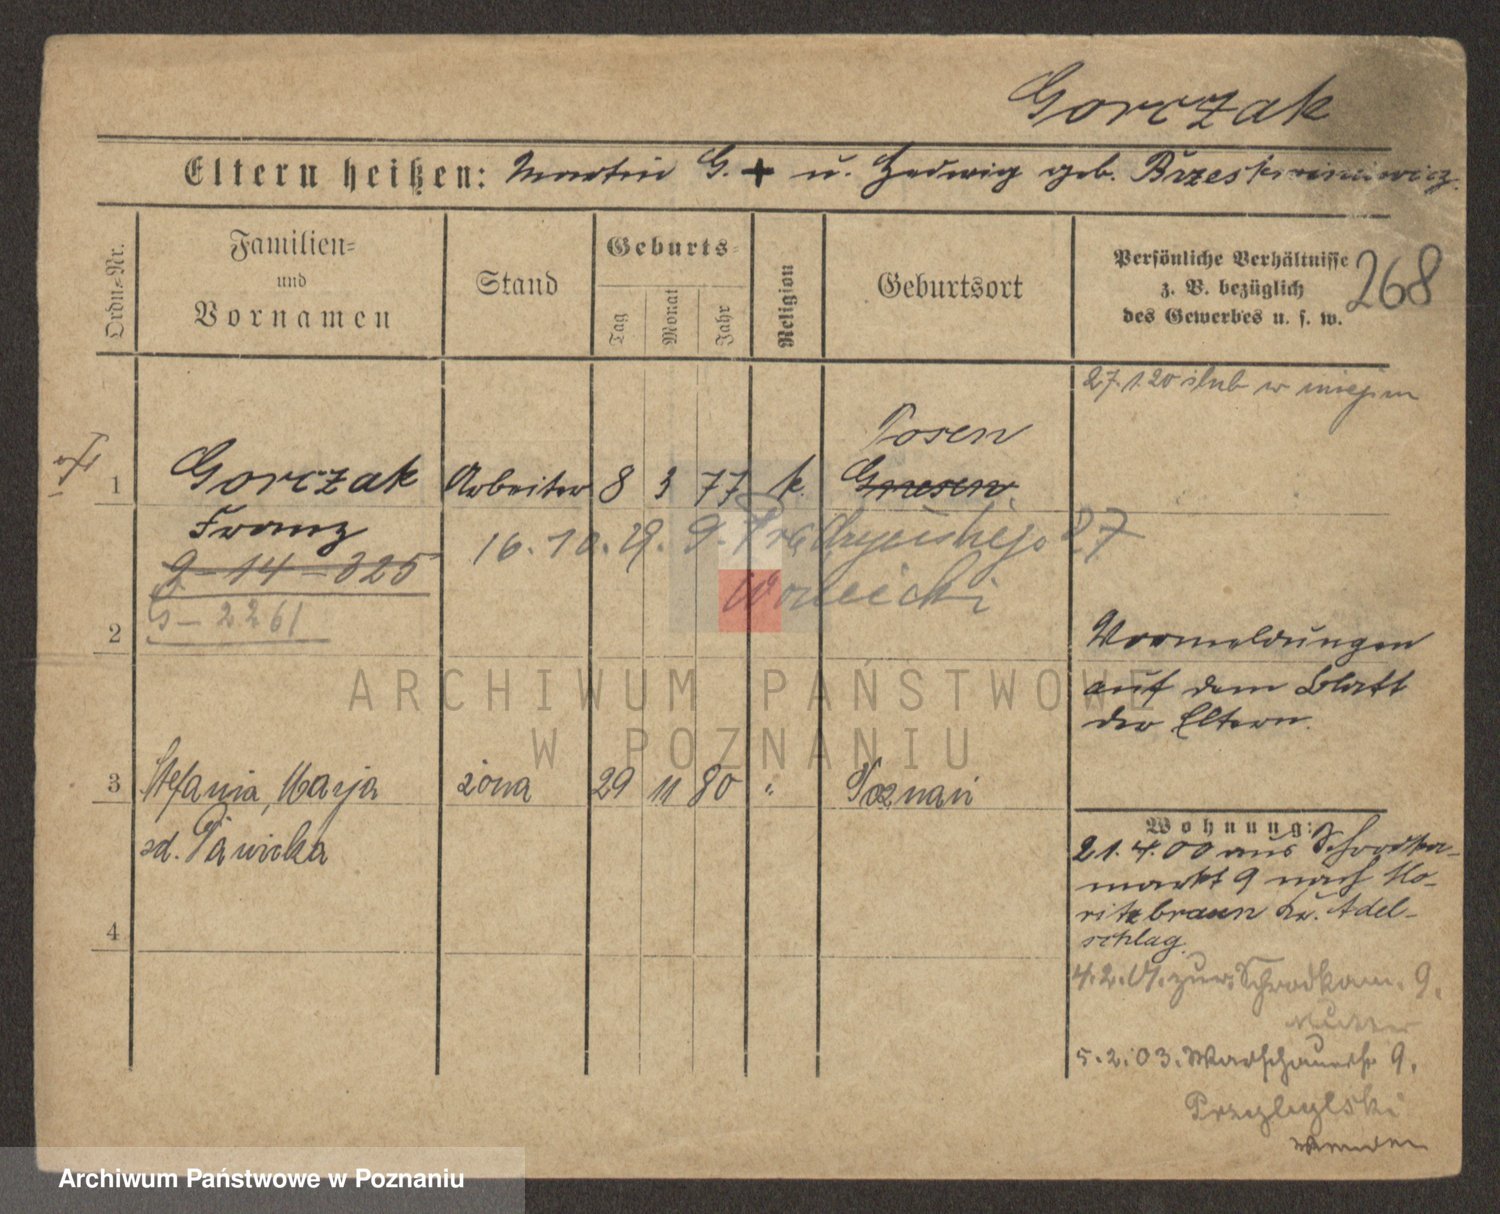 Gorczak
Eltern heißen: Martin G. + u. Hedwig geb.
Ordn=Nr.
Familien=
und
Vornamen
Stand
Geburts=
Tag
Monat
Jahr
Religion
Geburtsort
Persönliche Verhältnisse
z. B. bezüglich
des Gewerbes u. s. w.
268
27.1.20 ślub w
1
Gorczak
Arbeiter
8
3
77
k.
Posen
Gnesen
Franz
16. 10. 29. 9. 27
9-14-325
G-2261
2
Vormeldungen
auf dem Blatt
der Eltern.
ARCHIWUM PAŃSTWOWE
W POZNANIU
3
Stefania, Marja
żona
29
11
80
"
Poznań
zd. Pawicka
Wohnung:
21.4.00 aus Schrodka-
markt 9 nach Mo-
ritzbraun Kr. Adel-
schlag.
4
4.2.01. zur. Schrodkam. 9.
Mutter
5.2.03. Warschauerstr 9.
Archiwum Państwowe w Poznaniu